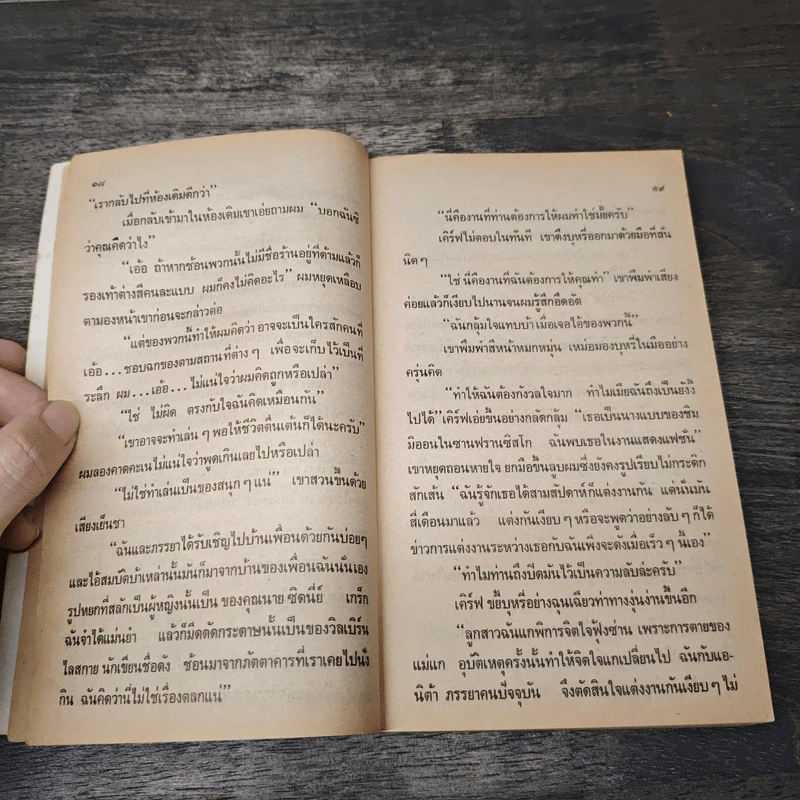 ๑๘
“เรากลับไปที่ห้องเดิมดีกว่า”
เมื่อกลับเข้ามาในห้องเดิมเขาเอ่ยถามผม “บอกฉันซิ
ว่าคุณคิดว่าไง”
“เอ้อ ถ้าหากช้อนพวกนั้นไม่มีชื่อร้านอยู่ที่ด้ามแล้วก็
รองเท้าต่างสีคนละแบบ ผมก็คงไม่คิดอะไร” ผมหยุดเหลือบ
ตามองหน้าเขาก่อนจะกล่าวต่อ
“แต่ของพวกนี้ทำให้ผมคิดว่า อาจจะเป็นใครสักคนที่
เอ้อ...ชอบฉกของตามสถานที่ต่างๆ เพื่อจะเก็บไว้เป็นที่
ระลึก ผม...เอ้อ...ไม่แน่ใจว่าผมคิดถูกหรือเปล่า”
“ใช่ ไม่ผิด ตรงกับใจฉันคิดเหมือนกัน”
“เขาอาจจะทำเล่นๆ พอให้ชีวิตตื่นเต้นก็ได้นะครับ”
ผมลองคาดคะเน ไม่แน่ใจว่าพูดเกินเลยไปหรือเปล่า
“ไม่ใช่ทำเล่นเป็นของสนุกๆ แน่” เขาสวนขึ้นด้วย
เสียงเย็นชา
“ฉันและภรรยาได้รับเชิญไปบ้านเพื่อนด้วยกันบ่อยๆ
และไอ้สมบัติบ้าเหล่านั้นมันก็มาจากบ้านของเพื่อนฉันนั่นเอง
รูปหยกที่สลักเป็นผู้หญิงนั้นเป็น ของคุณนาย ซิดนีย์ เกร็ก
ฉันจำได้แม่นยำ แล้วก็มีดตัดกระดาษนั้นเป็นของวิลเบิร์น
ไลสกาย นักเขียนชื่อดัง ช้อนมาจากภัตตาคารที่เราเคยไปนั่ง
กิน ฉันคิดว่านี่ไม่ใช่เรื่องตลกแน่”
๑๙
“นี่คืองานที่ท่านต้องการให้ผมทำใช่มั้ยครับ”
เคิร์ฟไม่ตอบในทันที เขาดึงบุหรี่ออกมาด้วยมือที่สั่น
นิดๆ
“ใช่ นี่คืองานที่ฉันต้องการให้คุณทำ” เขาพึมพำเสียง
ค่อยแล้วก็เงียบไปนานจนผมรู้สึกอึดอัด
“ฉันกลุ้มใจแทบบ้า เมื่อเจอไอ้ของพวกนี้”
เขาพึมพำสีหน้าหมกหมุ่น เหม่อมองบุหรี่ในมืออย่าง
ครุ่นคิด
“ทำให้ฉันต้องกังวลใจมาก ทำไมเมียฉันถึงเป็นยังงี้
ไปได้” เคิร์ฟเอ่ยขึ้นอย่างกลัดกลุ้ม “เธอเป็นนางแบบของซิม
มีออนในซานฟรานซิสโก ฉันพบเธอในงานแสดงแฟชั่น”
เขาหยุดถอนหายใจ ยกมือขึ้นลูบผมซึ่งยังคงรูปเรียบไม่กระดิก
สักเส้น “ฉันรู้จักเธอได้สามสัปดาห์ก็แต่งงานกัน แต่นั่นมัน
สี่เดือนมาแล้ว แต่งกันเงียบๆ หรือจะพูดว่าอย่างลับๆ ก็ได้
ข่าวการแต่งงานระหว่างเธอกับฉันเพิ่งจะดังเมื่อเร็วๆ นี้เอง”
“ทำไมท่านถึงปิดมันไว้เป็นความลับล่ะครับ”
เคิร์ฟ ขยี้บุหรี่อย่างฉุนเฉียวท่าทางงุ่นง่านขึ้นอีก
“ลูกสาวฉันแกพิการจิตใจฟุ้งซ่าน เพราะการตายของ
แม่แก อุบัติเหตุครั้งนั้นทำให้จิตใจแกเปลี่ยนไป ฉันกับแอ-
นิต้า ภรรยาคนปัจจุบัน จึงตัดสินใจแต่งงานกันเงียบๆ ไม่